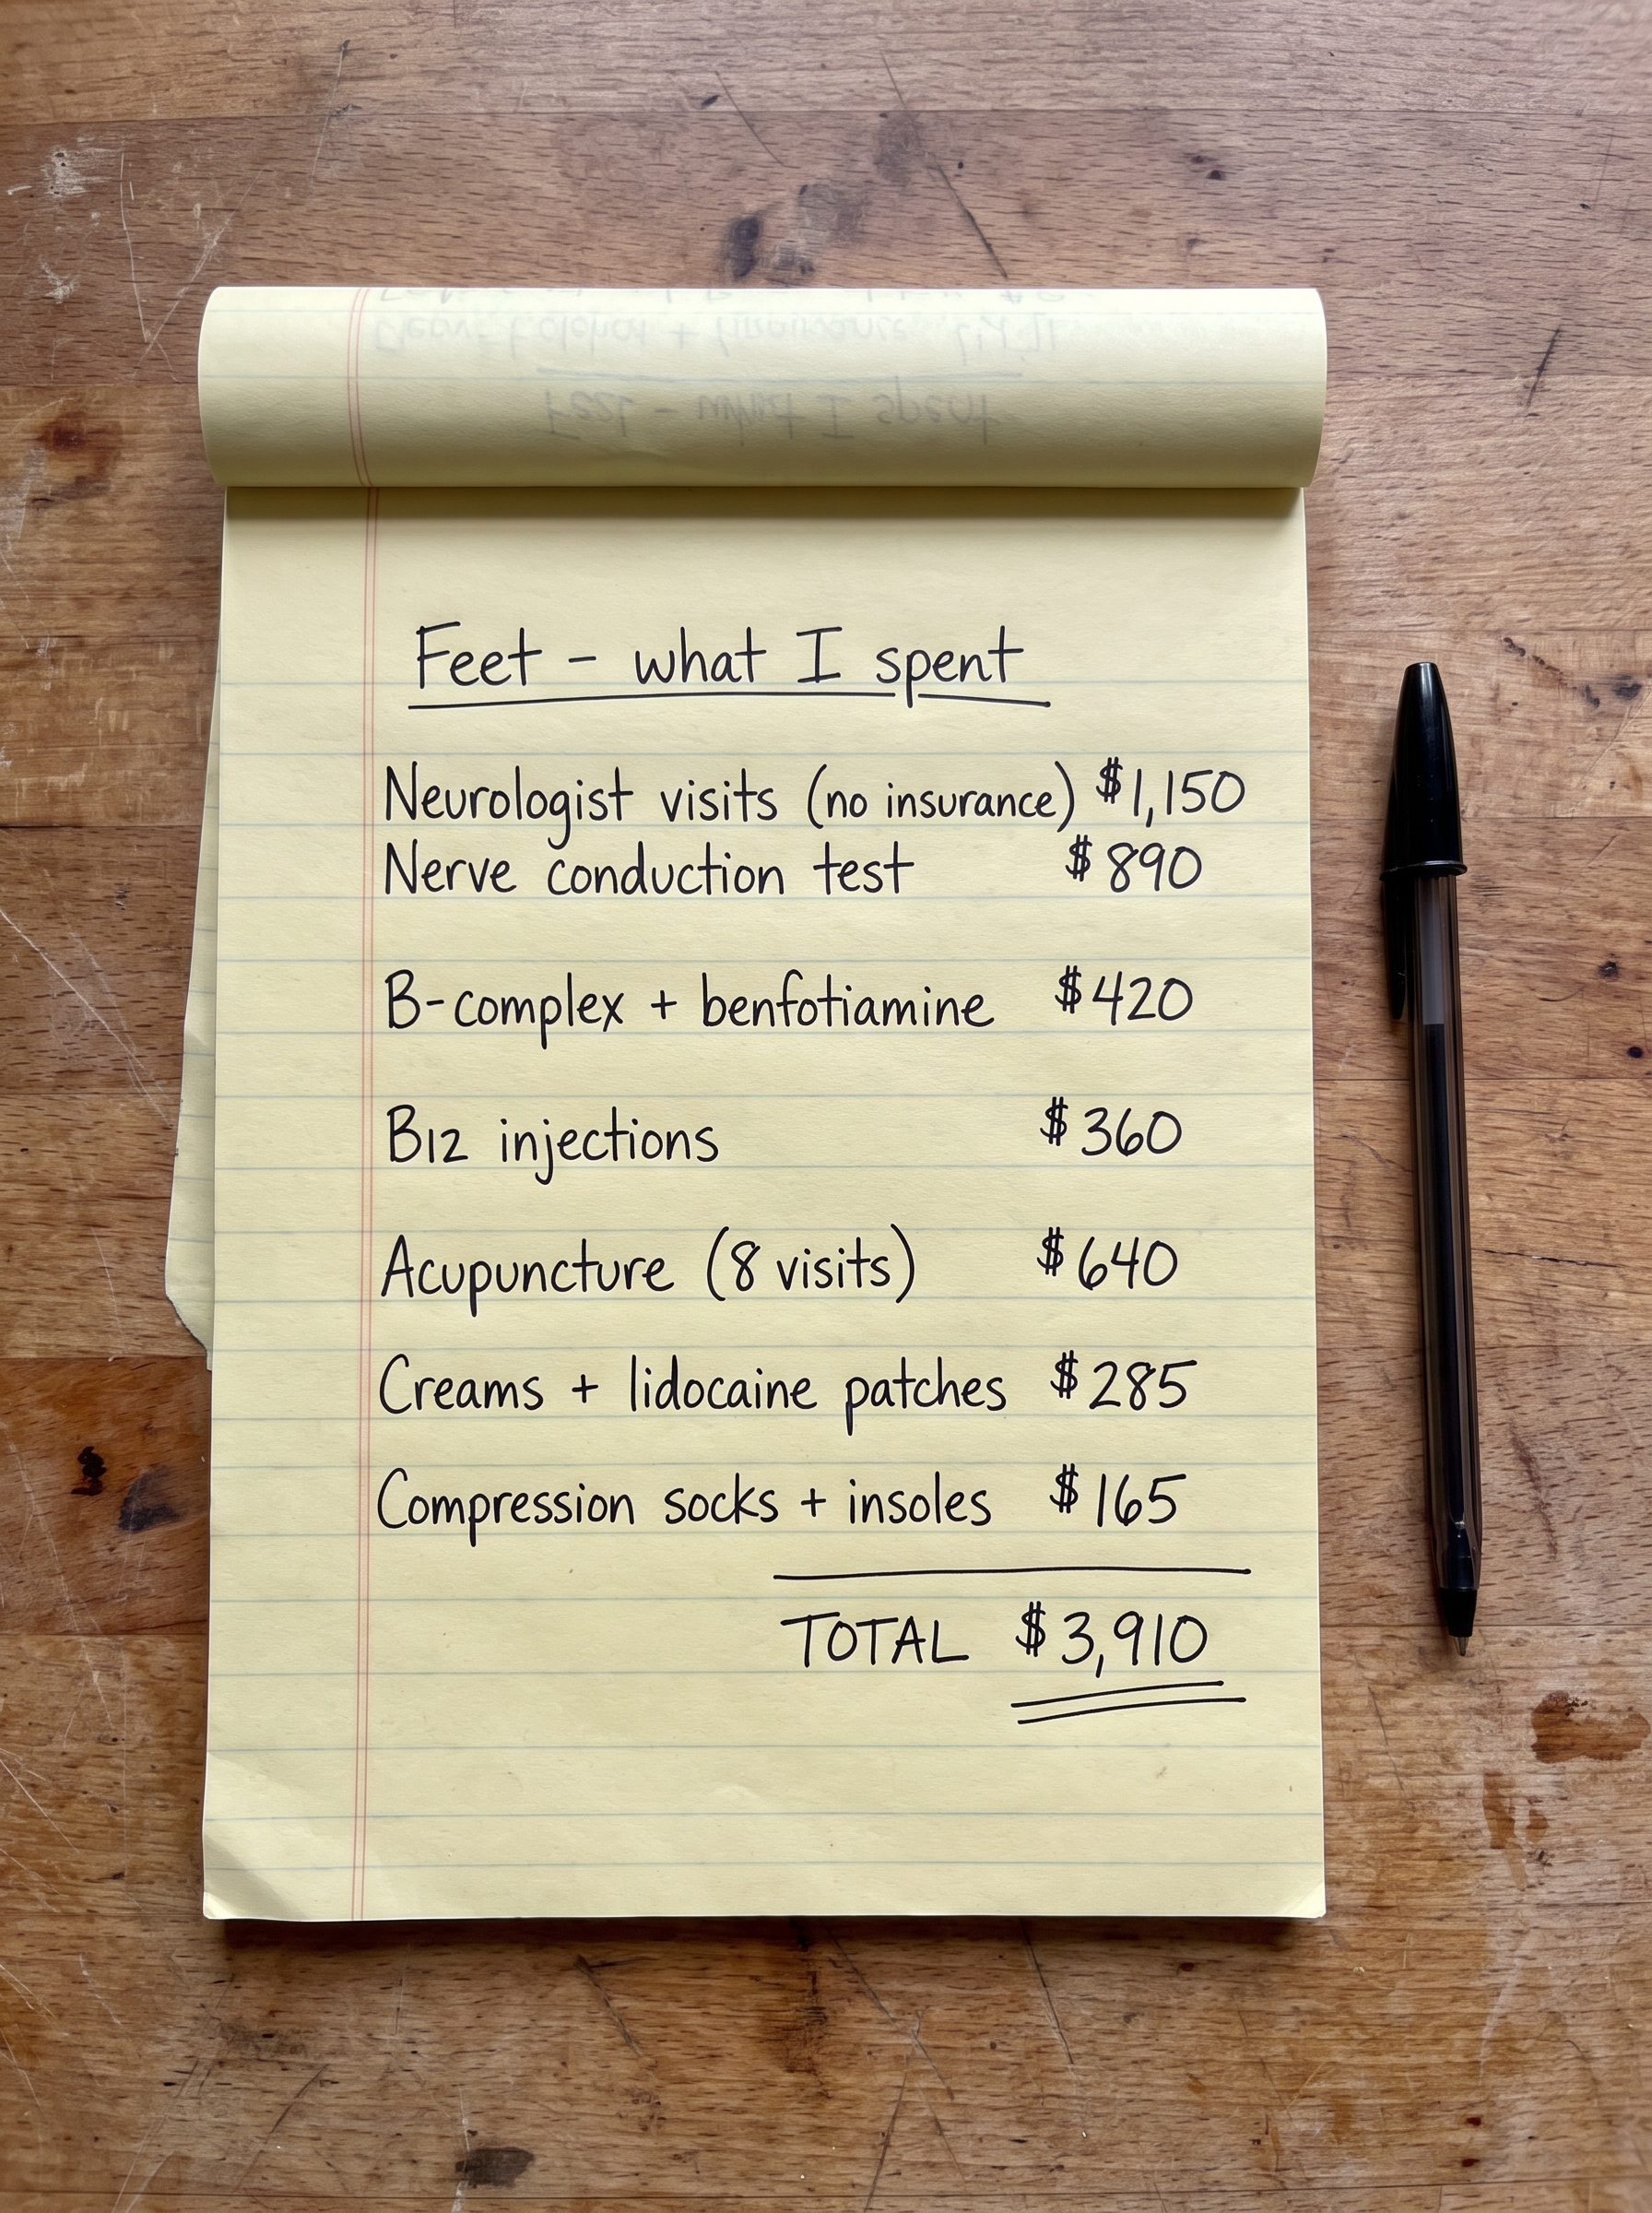 Feet - what I spent
Feet - what I spent
Neurologist visits (no insurance) $1,150
Nerve conduction test $890
B-complex + benfotiamine $420
B12 injections $360
Acupuncture (8 visits) $640
Creams + lidocaine patches $285
Compression socks + insoles $165
TOTAL $3,910